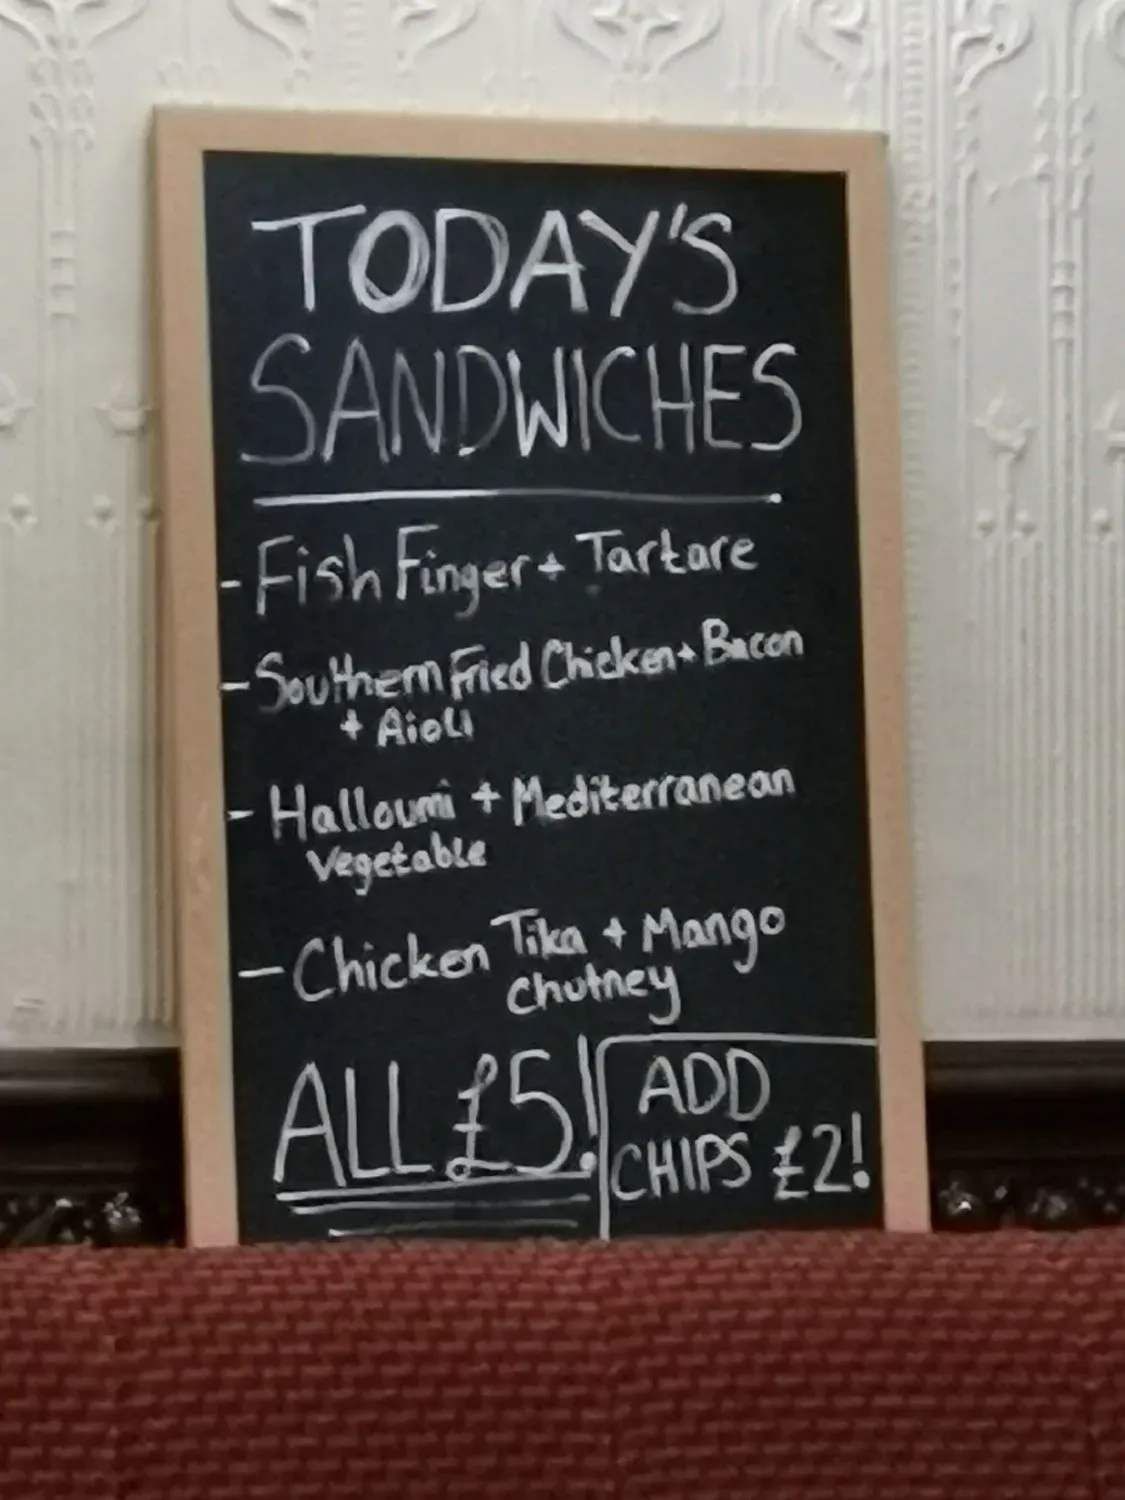 TODAY'S
SANDWICHES
- Fish Finger + Tartare
- Southern Fried Chicken + Bacon
+ Aioli
- Halloumi + Mediterranean
Vegetable
- Chicken Tika + Mango
Chutney
ALL £5!
ADD
CHIPS £2!